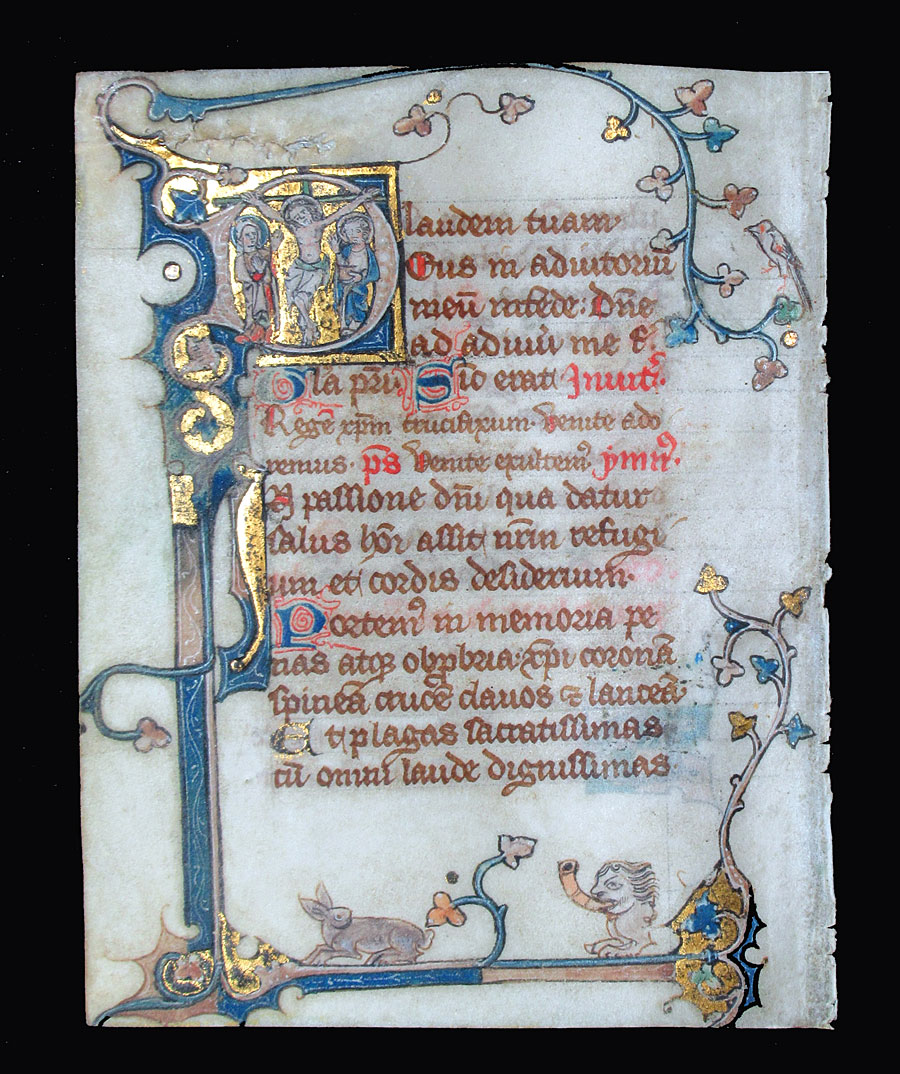 laudem tuam·
Deus in adiutoriū
meū intēde: Dn̄e
ad adiuuā me f.
Gl̄a pr̄i Sic erat Inuit̄.
Regē xp̄m crucifixum· venite ado
remus· ps̄ Venite exultem⁹ ymn⁹·
In passione dn̄i qua datur
salus hōi assit nr̄m refugi
um et cordis desiderium·
Portem⁹ in memoria pe
nas atqꝫ obꝓbria: xp̄i coronā
spineā crucē clauos & lanceā·
Et plagas sacratissimas
cū omni laude dignissimas·